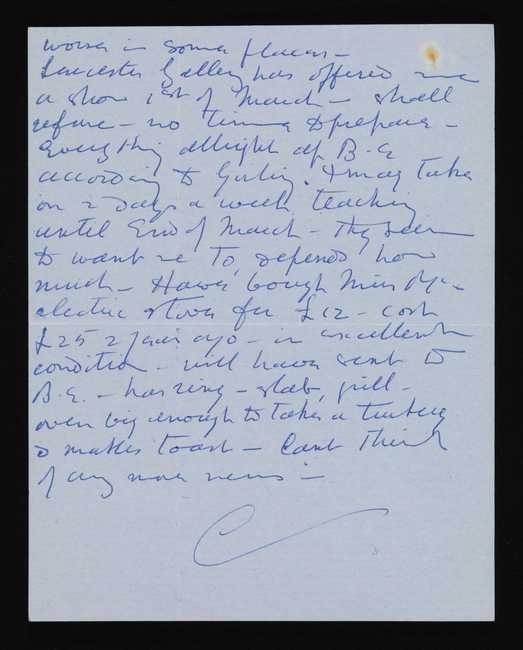 worse in some places -
Leicester Gallery has offered me
a show 1st of March - shall
refuse - no time to prepare -
Everything allright at B.E
according to Gosling. I may take
on 2 days a week teaching
until End of March - they seem
to want me to, depends how
much - Have bought Miss
electric stove for £12 - cost
£25 2 years ago - in excellent
condition - will have sent to
B.E. - has ring - slab, grill -
oven big enough to take a turkey
& makes toast - Cant think
of any more news -
C